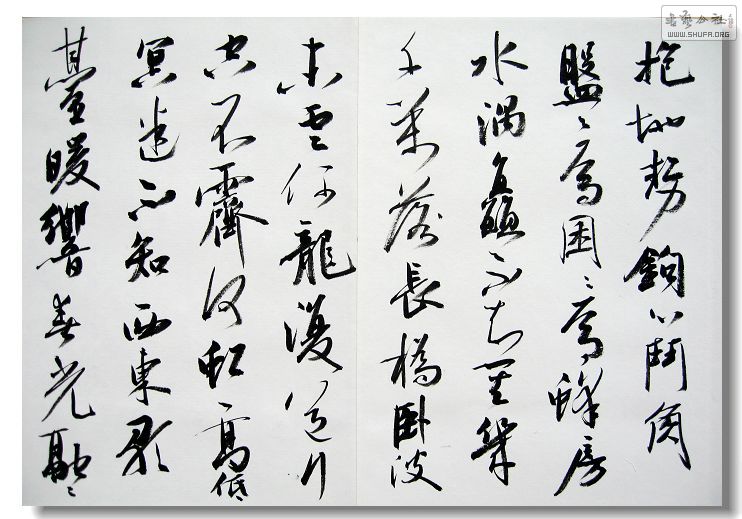 書藝公社
WWW.SHUFA.ORG
抱地勢鉤心鬥角
盤〻焉囷〻焉蜂房
水渦矗不知其幾
千萬落長橋臥波
未雲何龍復道行
空不霽何虹高低
冥迷不知西東歌
臺暖響春光融〻